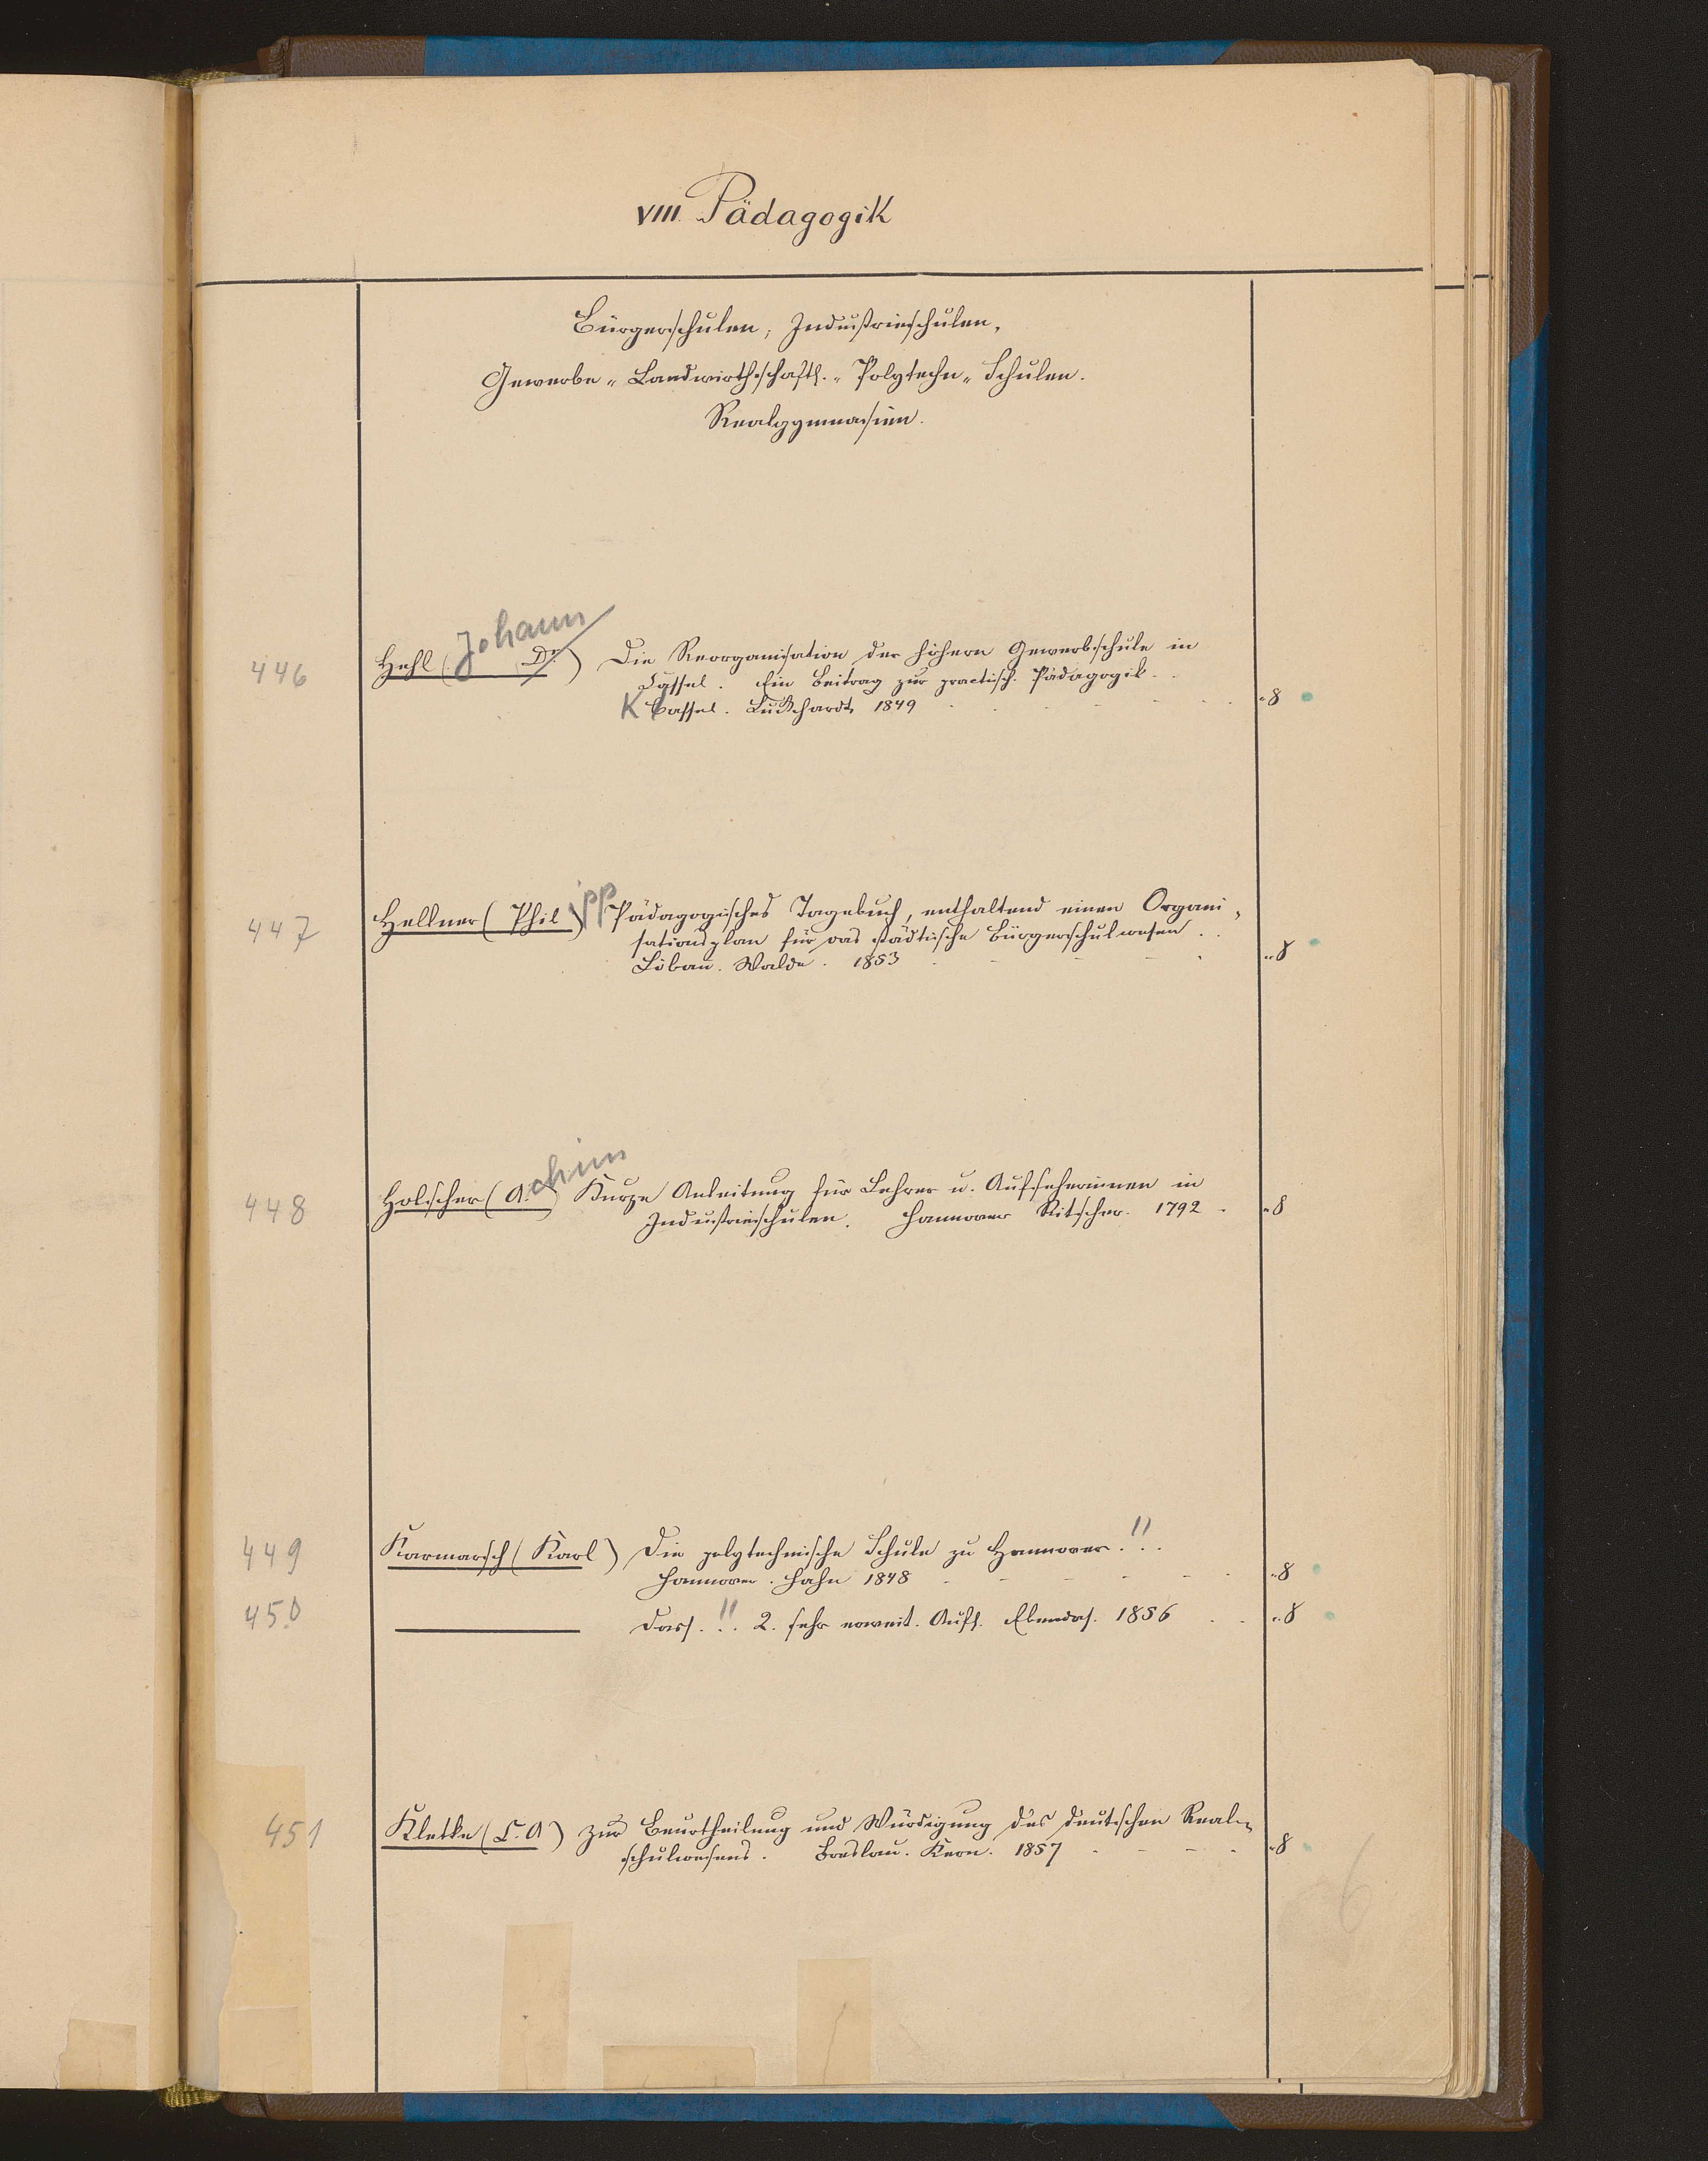 VIII. Pädagogik
Bürgerschulen, Industrieschulen,
Gewerbe- Landwirthschaftl.- Polytechn- Schulen.
Realgymnasien.
446 Hehl (Johann Dr.) Die Reorganisation der höhern Gewerbschule in
Cassel. Ein Beitrag zur practisch. Pädagogik.
K Cassel. Luckhardt 1849 8
447 Hellner (Philipp) Pädagogisches Tagebuch, enthaltend einen Organi-
sationsplan für das städtische Bürgerschulwesen.
Löbau. Walde. 1853 8
448 Holscher (Achim) Kurze Anleitung für Lehrer u. Aufseherinnen in
Industrieschulen. Hannover Ritscher. 1792. 8
449 Karmarsch (Karl) Die polytechnische Schule zu Hannover. !!
Hannover. Hahn 1848 8
450 Dass. !! 2. sehr erweit. Aufl. Ebendas. 1856 8
451 Kletke (C. A) Zur Beurtheilung und Würdigung des deutschen Real-
schulwesens. Breslau. Kern. 1857 8
6